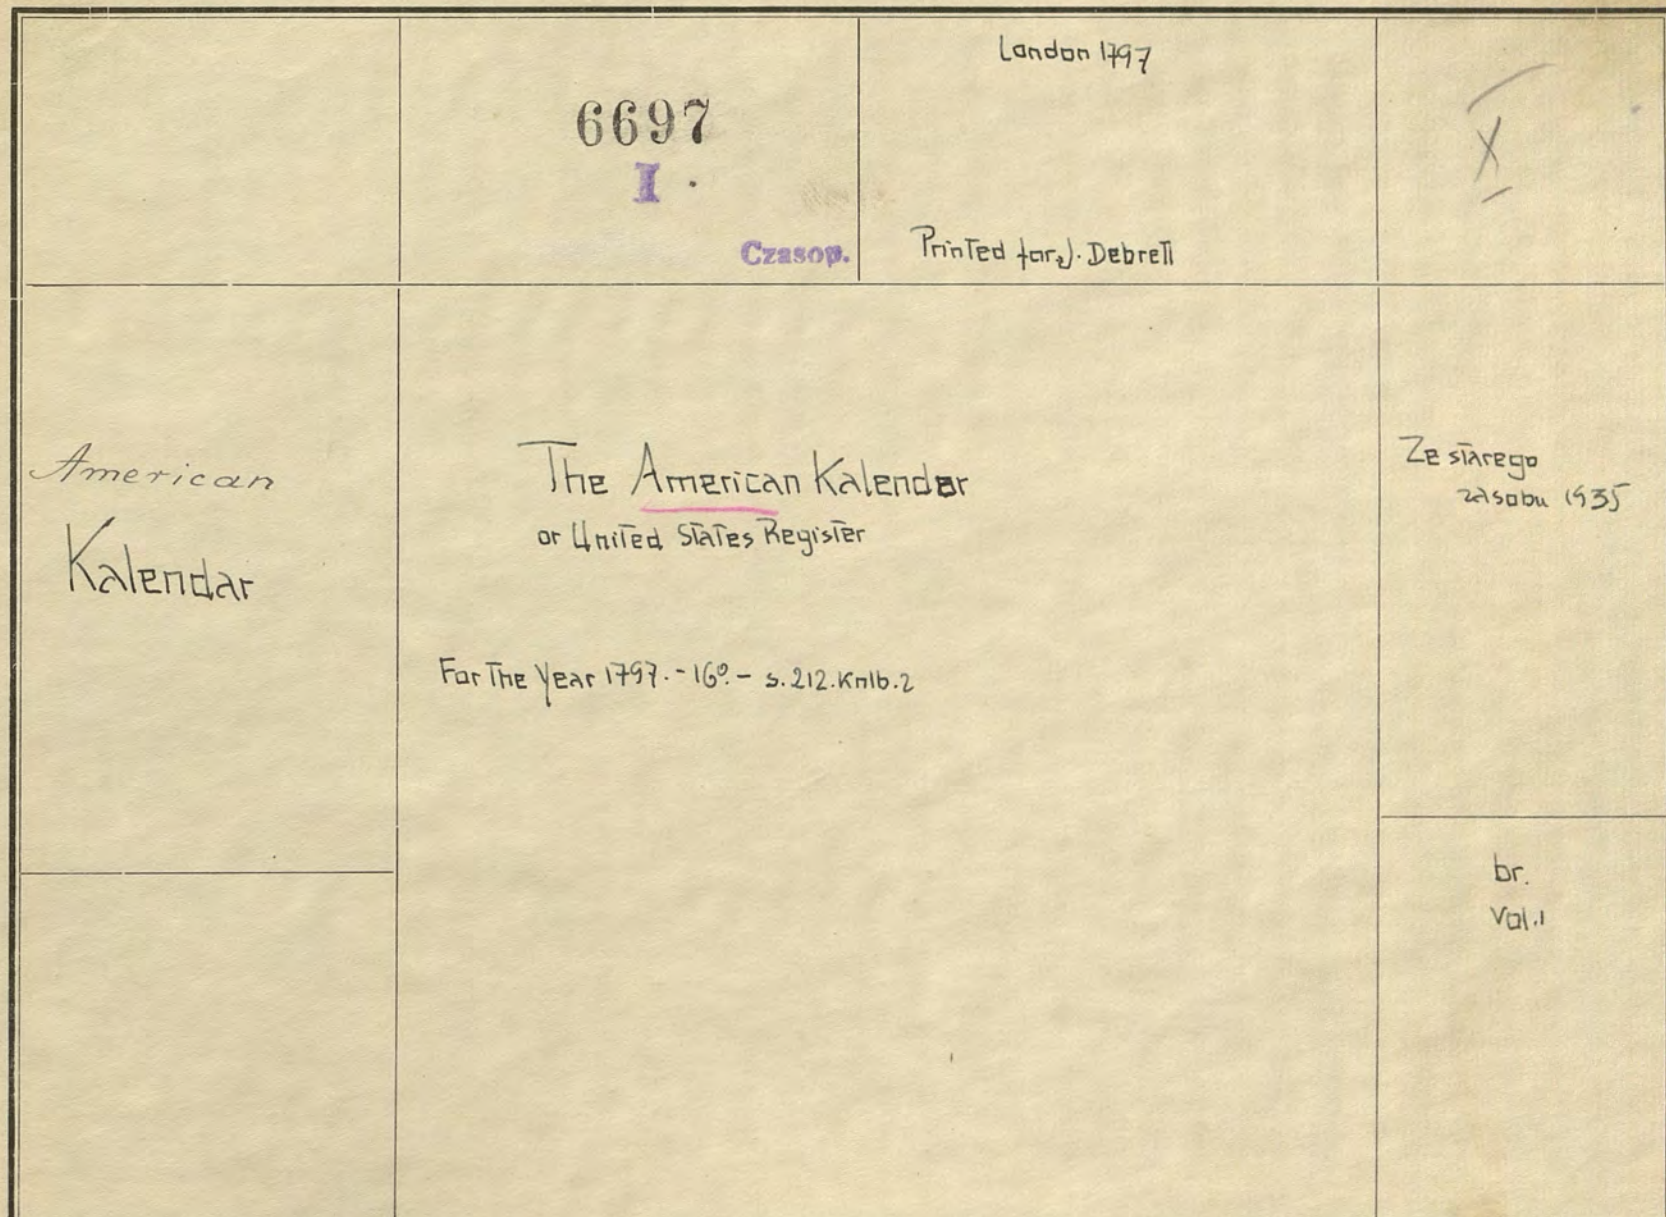 6697
I
Czasop.
London 1797
Printed for J. Debrett
X
American
Kalendar
The American Kalendar
or United States Register
For The Year 1797. - 16º. - s. 212. Knlb. 2
Ze starego
zasobu 1935
br.
Vol. 1